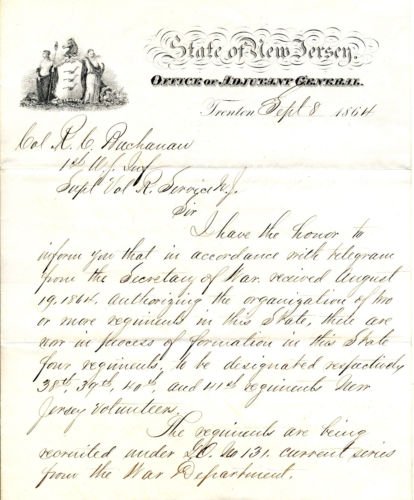 State of New Jersey.
OFFICE OF ADJUTANT GENERAL.
Trenton Sept 8 1864
Col R. C. Buchanan
1st U.S. Inf
Supt Vol R. Service N.J.
Sir
I have the honor to
inform you that in accordance with telegram
from the Secretary of War received August
19, 1864, authorizing the organization of two
or more regiments in this State, there are
now in process of formation in this State
four regiments, to be designated respectively
38th, 39th, 40th, and 41st regiments New
Jersey Volunteers.
The regiments are being
recruited under G.O. No 131. current series
from the War Department.